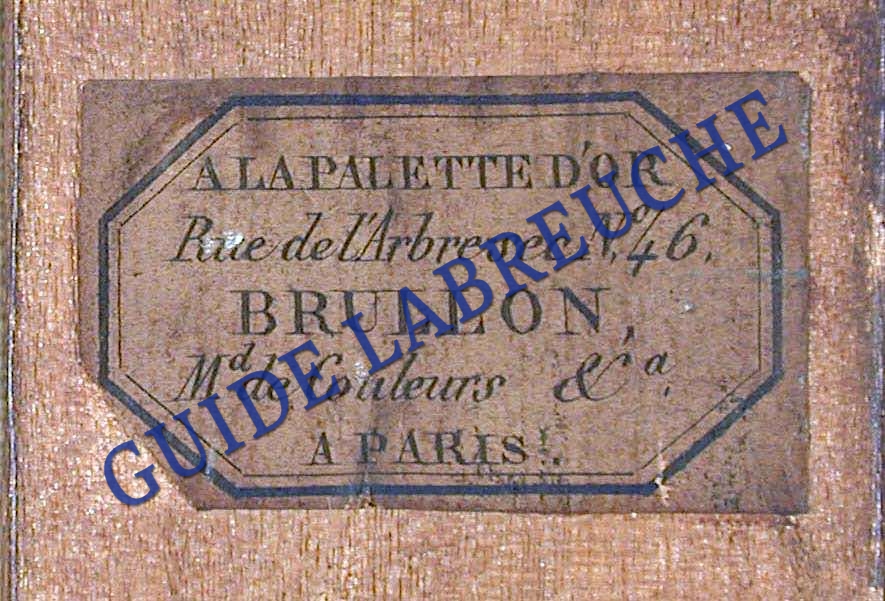 A LA PALETTE D'OR
Rue de l'Arbre sec N.º 46.
BRULLON,
M.d de Couleurs &.a
A PARIS.
GUIDE LABREUCHE